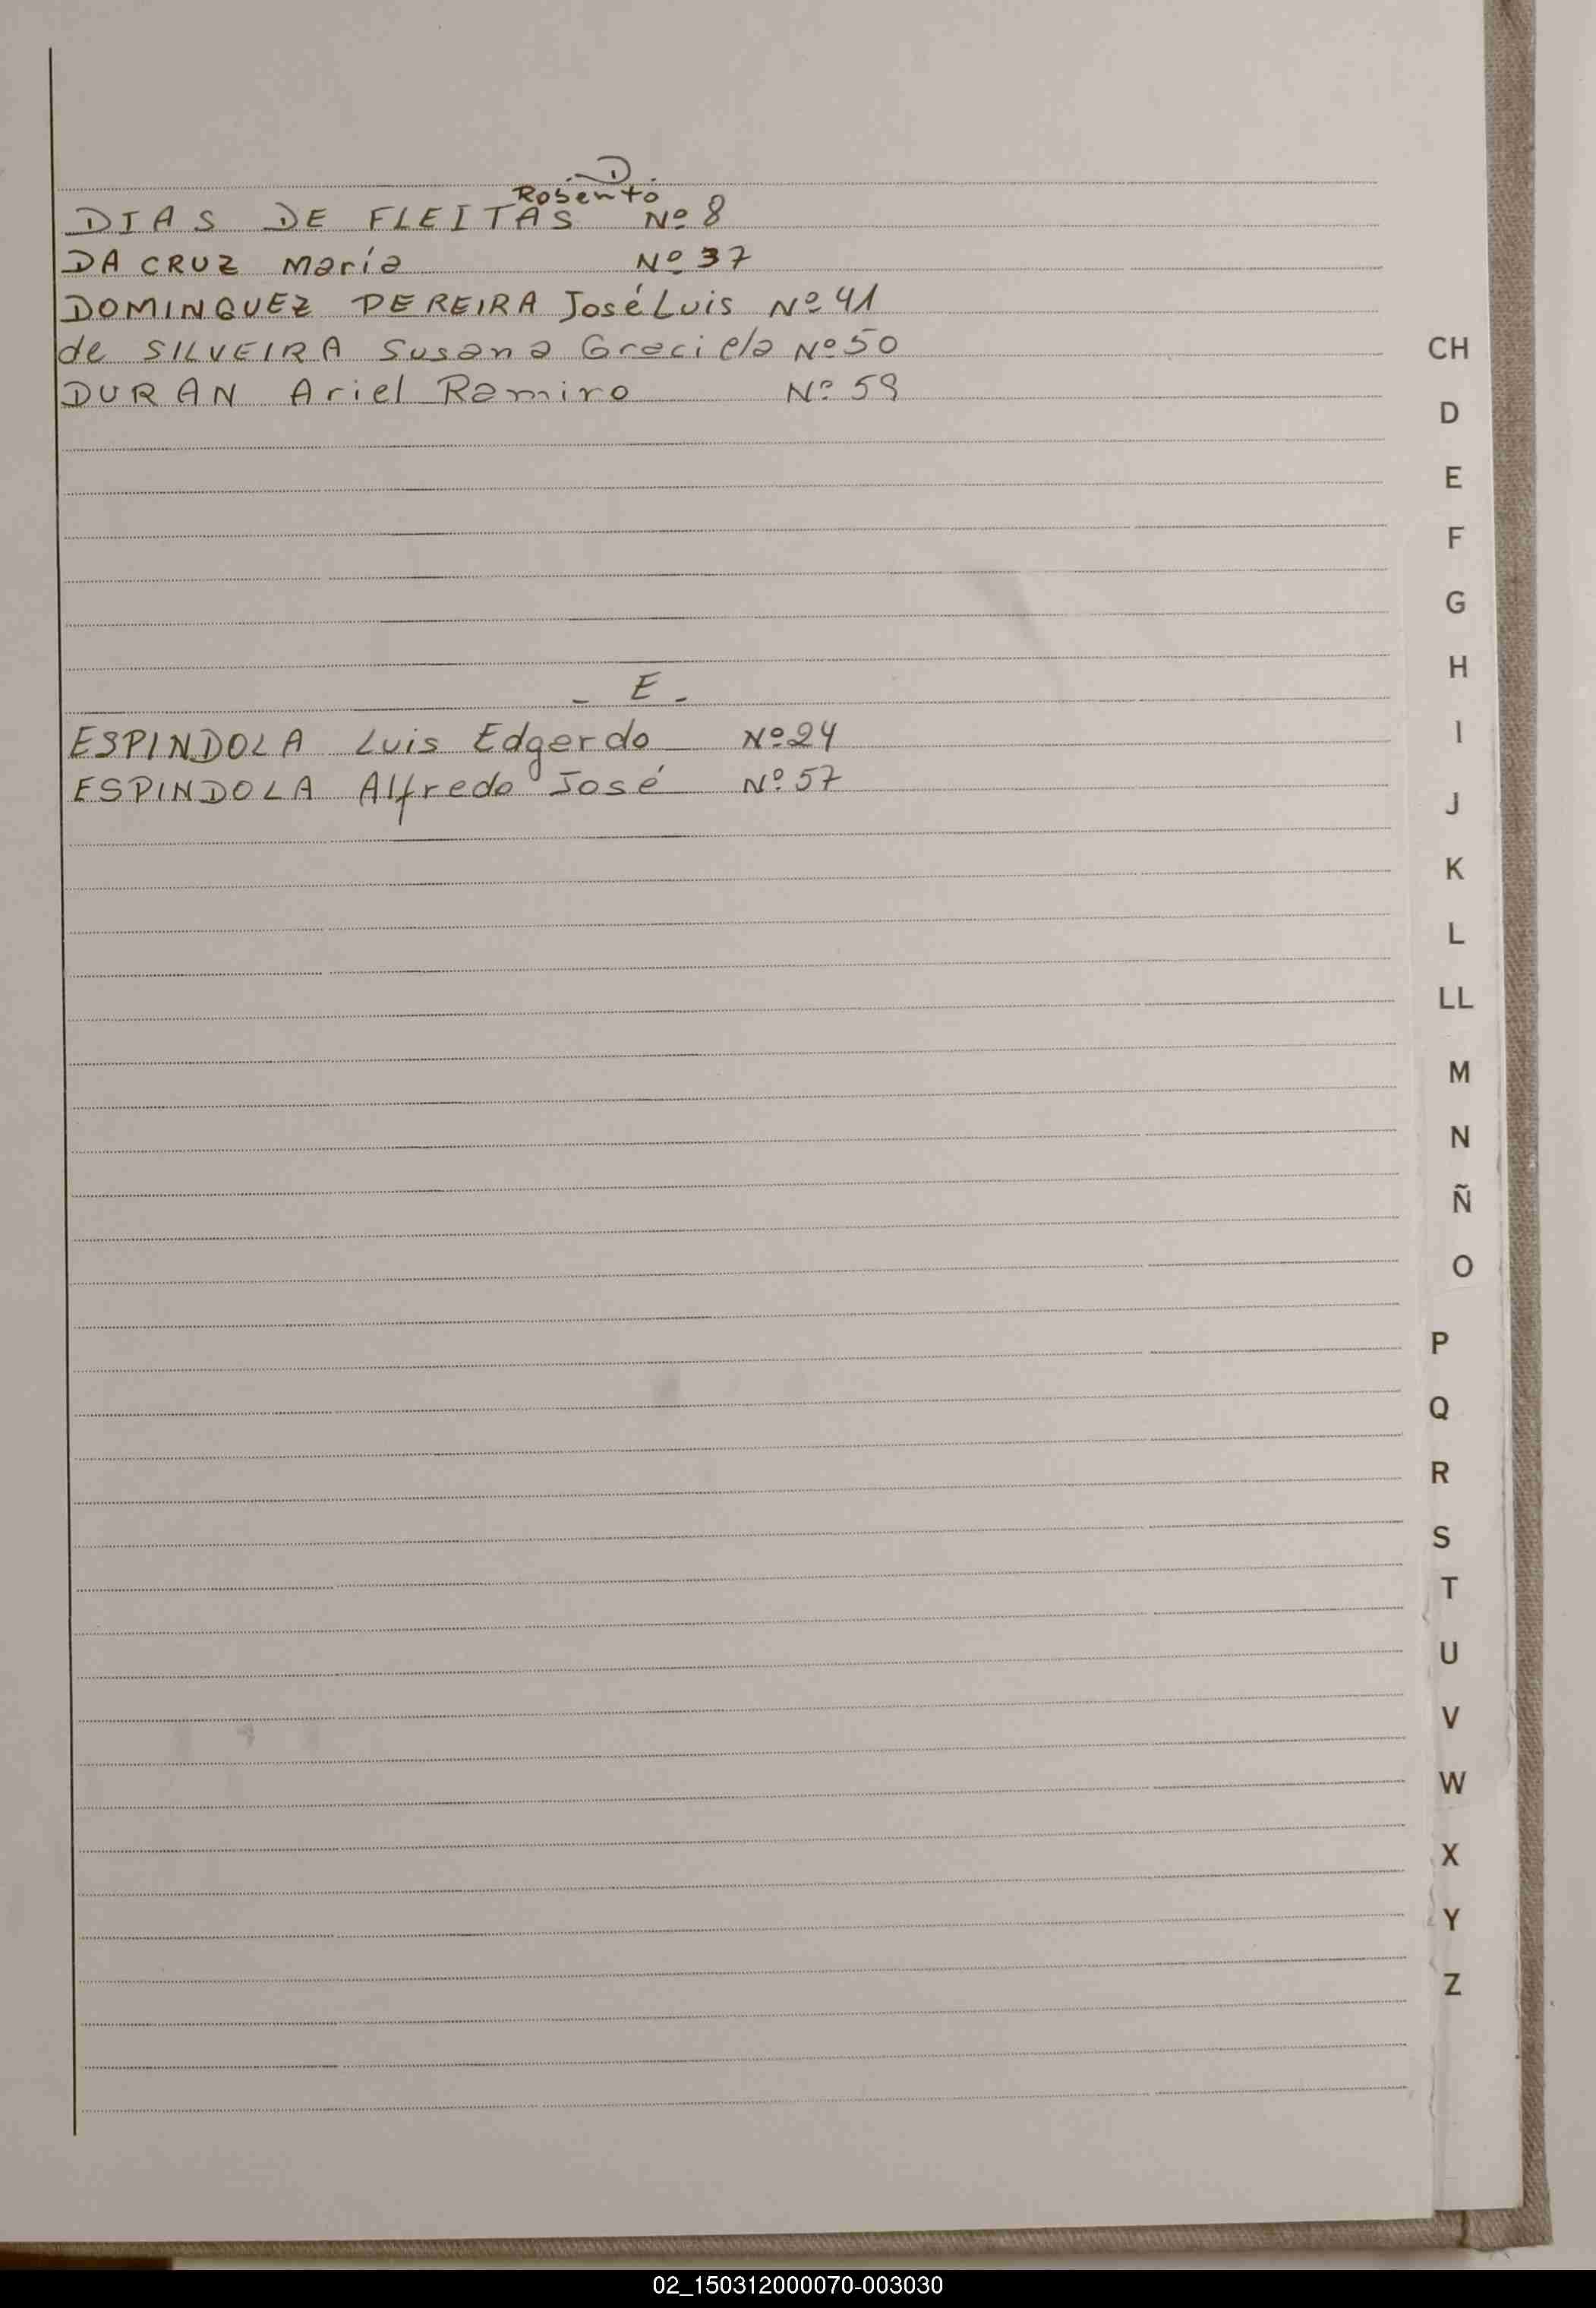 - D -
Rosento
DIAS DE FLEITAS Nº 8
DA CRUZ María Nº 37
DOMINGUEZ PEREIRA José Luis Nº 41
de SILVEIRA Susana Graciela Nº 50
DURAN Ariel Ramiro Nº 59
- E -
ESPINDOLA Luis Edgardo Nº 24
ESPINDOLA Alfredo José Nº 57
CH
D
E
F
G
H
I
J
K
L
LL
M
N
Ñ
O
P
Q
R
S
T
U
V
W
X
Y
Z
02_150312000070-003030